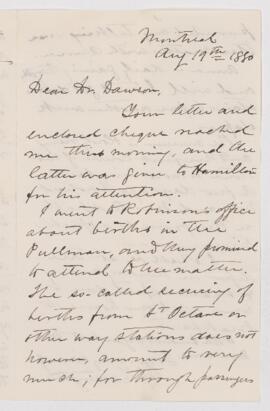 Montreal
Aug 19th 1880
Dear Dr. Dawson,
Your letter and
enclosed cheque reached
me this morning, and the
latter was given to Hamilton
for his attention.
I went to Robinson's office
about births in the
Pullman, and they promised
to attend to the matter.
The so-called securing of
births from St Octave or
other way stations does not
however, amount to very
much; for through passengers